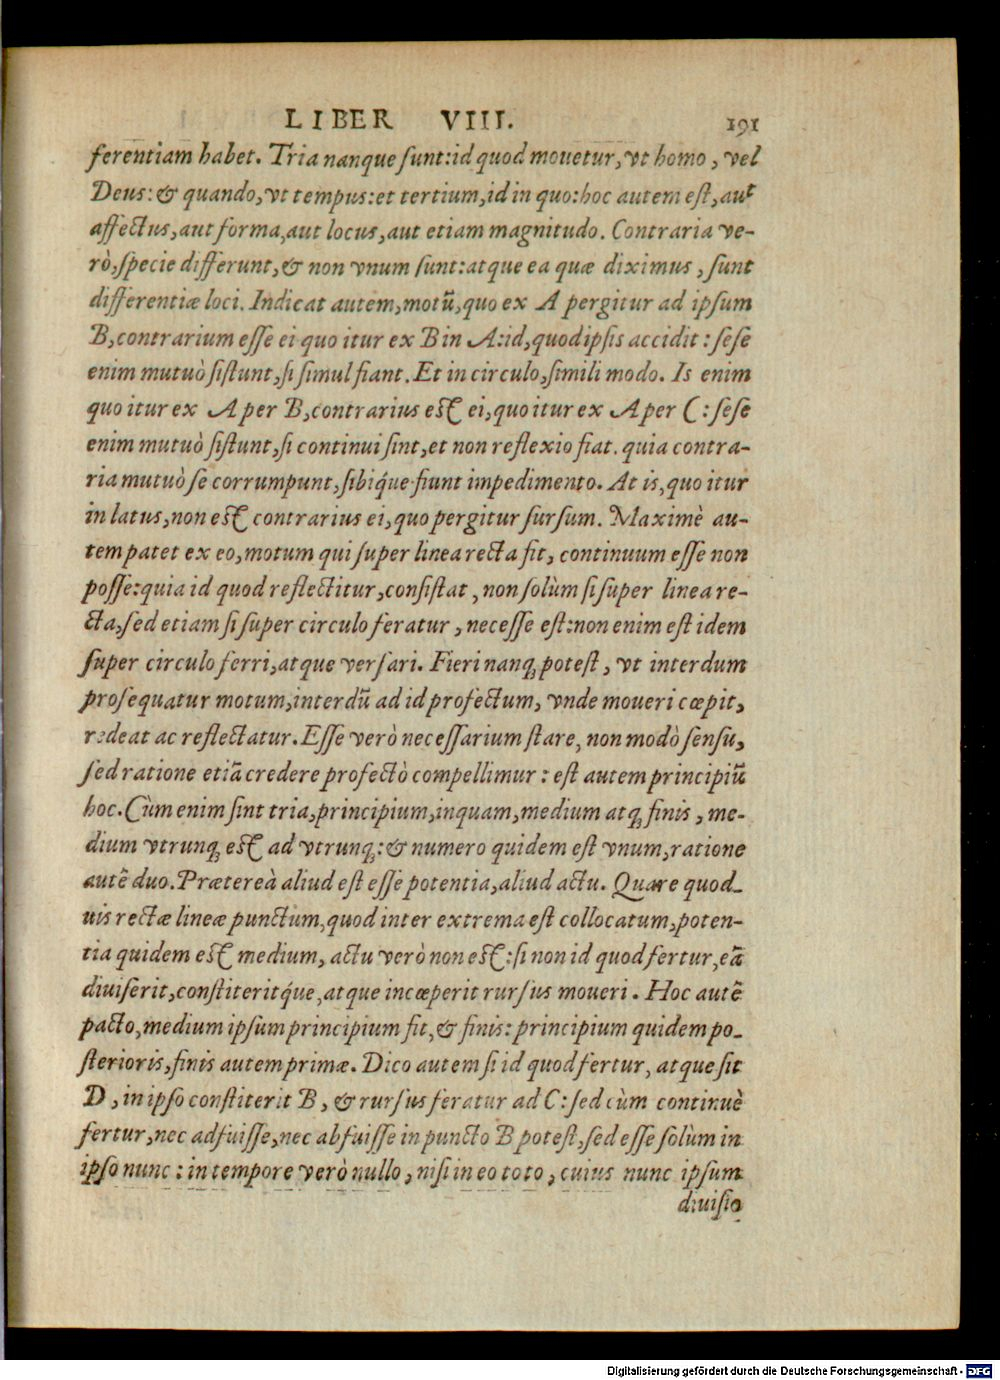 LIBER VIII. 191
ferentiam habet. Tria nanque ſunt:id quod mouetur, vt homo, vel
Deus: & quando, vt tempus: et tertium, id in quo: hoc autem eſt, aut
affectus, aut forma, aut locus, aut etiam magnitudo. Contraria ve-
rò, ſpecie differunt, & non vnum ſunt: atque ea quæ diximus, ſunt
differentiæ loci. Indicat autem, motũ, quo ex A pergitur ad ipſum
B, contrarium eſſe ei quo itur ex B in A: id, quod ipſis accidit: ſeſe
enim mutuò ſiſtunt, ſi ſimul fiant. Et in circulo, ſimili modo. Is enim
quo itur ex A per B, contrarius eſt ei, quo itur ex A per C: ſeſe
enim mutuò ſiſtunt, ſi continui ſint, et non reflexio fiat. quia contra-
ria mutuò ſe corrumpunt, ſibiq́ue fiunt impedimento. At is, quo itur
in latus, non eſt contrarius ei, quo pergitur ſurſum. Maximè au-
tem patet ex eo, motum qui ſuper linea recta fit, continuum eſſe non
poſſe: quia id quod reflectitur, conſiſtat, non ſolùm ſi ſuper linea re-
cta, ſed etiam ſi ſuper circulo feratur, neceſſe eſt: non enim eſt idem
ſuper circulo ferri, atque verſari. Fieri nanq; poteſt, vt interdum
proſequatur motum, interdũ ad id profectum, vnde moueri cœpit,
redeat ac reflectatur. Eſſe verò neceſſarium ſtare, non modò ſenſu,
ſed ratione etiã credere profectò compellimur: eſt autem principiũ
hoc. Cùm enim ſint tria, principium, inquam, medium atq; finis, me-
dium vtrunq; eſt ad vtrunq;: & numero quidem eſt vnum, ratione
autẽ duo. Prætereà aliud eſt eſſe potentia, aliud actu. Quare quod-
uis rectæ lineæ punctum, quod inter extrema eſt collocatum, poten-
tia quidem eſt medium, actu verò non eſt: ſi non id quod fertur, eã
diuiſerit, conſtiteritq́ue, atque incœperit rurſus moueri. Hoc autẽ
pacto, medium ipſum principium fit, & finis: principium quidem po-
ſterioris, finis autem primæ. Dico autem ſi id quod fertur, atque ſit
D, in ipſo conſtiterit B, & rurſus feratur ad C: ſed cùm continuè
fertur, nec adfuiſſe, nec abfuiſſe in puncto B poteſt, ſed eſſe ſolùm in
ipſo nunc: in tempore verò nullo, niſi in eo toto, cuius nunc ipſum
diuiſio
Digitalisierung gefördert durch die Deutsche Forschungsgemeinschaft - DFG